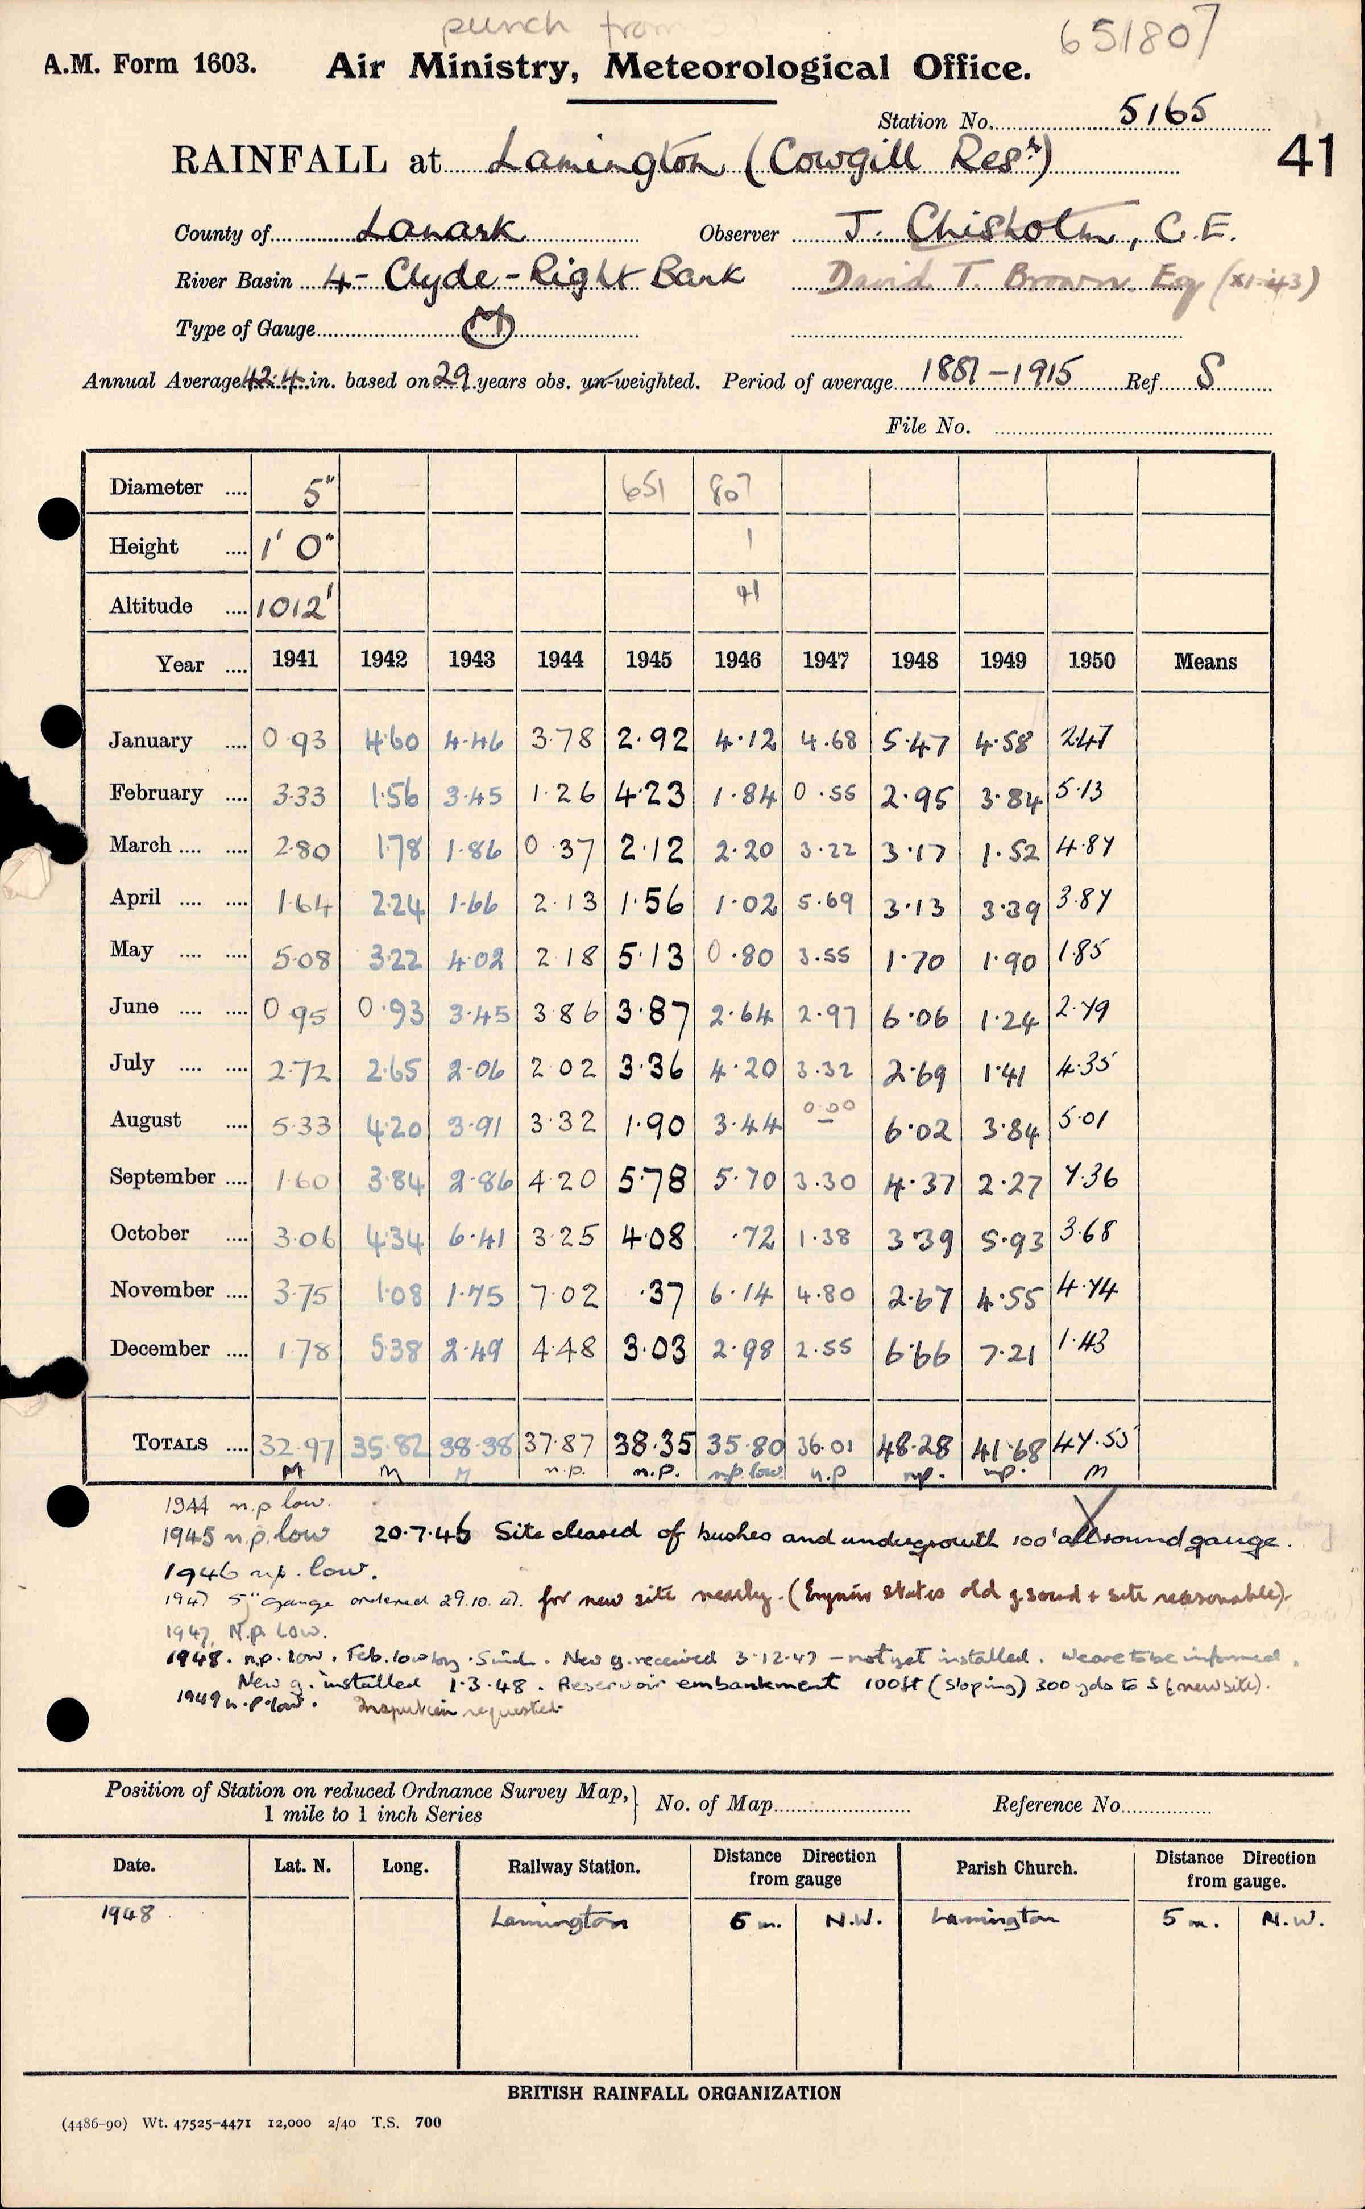 punch from
651807
A.M. Form 1603. Air Ministry, Meteorological Office.
Station No. 5165
RAINFALL at Lamington (Cowgill Resr) 41
County of Lanark Observer J. Chisholm, C.E.
River Basin 4 - Clyde - Right Bank David T. Brown Esq (XI.43)
Type of Gauge M
Annual Average 42.4 in. based on 29 years obs. un-weighted. Period of average 1887-1915 Ref S
File No.
Diameter .... 5" 651 807
Height .... 1' 0" 1
Altitude .... 1012' 41
Year .... 1941 1942 1943 1944 1945 1946 1947 1948 1949 1950 Means
January .... 0.93 4.60 4.46 3.78 2.92 4.12 4.68 5.47 4.58 2.47
February .... 3.33 1.56 3.45 1.26 4.23 1.84 0.55 2.95 3.84 5.13
March .... .... 2.80 1.78 1.86 0.37 2.12 2.20 3.22 3.17 1.52 4.87
April .... .... 1.64 2.24 1.66 2.13 1.56 1.02 5.69 3.13 3.39 3.87
May .... .... 5.08 3.22 4.02 2.18 5.13 0.80 3.55 1.70 1.90 1.85
June .... .... 0.95 0.93 3.45 3.86 3.87 2.64 2.97 6.06 1.24 2.79
July .... .... 2.72 2.65 2.06 2.02 3.36 4.20 3.32 2.69 1.41 4.35
August .... 5.33 4.20 3.91 3.32 1.90 3.44 0.00 - 6.02 3.84 5.01
September .... 1.60 3.84 2.86 4.20 5.78 5.70 3.30 4.37 2.27 7.36
October .... 3.06 4.34 6.41 3.25 4.08 .72 1.38 3.39 5.93 3.68
November .... 3.75 1.08 1.75 7.02 .37 6.14 4.80 2.67 4.55 4.74
December .... 1.78 5.38 2.49 4.48 3.03 2.98 2.55 6.66 7.21 1.43
TOTALS .... 32.97 35.82 38.38 37.87 38.35 35.80 36.01 48.28 41.68 47.55
M M M n.p. n.p. n.p. low n.p np. np. M
1944 n.p low.
1945 n.p. low 20.7.46 Site cleared of bushes and undergrowth 100' all round gauge.
1946 n.p. low.
1947 5" Gauge ordered 29.10.47. for new site nearby. (Enquiries states old g. sound + site reasonable).
1947. N.p. Low.
1948. n.p. low. Feb. low by Sind. New g. received 3.12.47 - not yet installed. We are to be informed.
New g. installed 1.3.48. Reservoir embankment 100ft (sloping) 300 yds to S (new site).
1949 n.p. low. Inspection requested
Position of Station on reduced Ordnance Survey Map, 1 mile to 1 inch Series No. of Map Reference No.
Date. Lat. N. Long. Railway Station. Distance Direction from gauge Parish Church. Distance Direction from gauge.
1948 Lamington 5 m. N.W. Lamington 5 m. N.W.
BRITISH RAINFALL ORGANIZATION
(4486-90) Wt. 47525-4471 12,000 2/40 T.S. 700